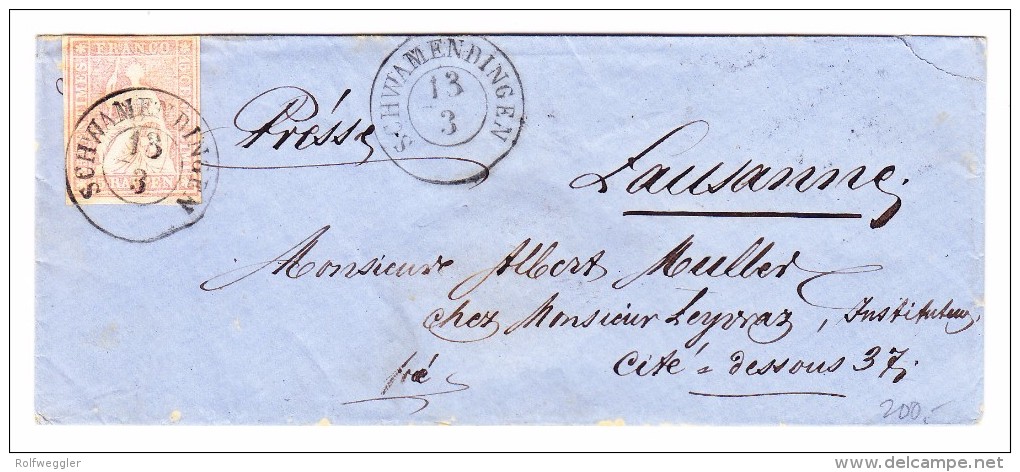 FRANCO
RAPPEN
SCHWAMENDINGEN
13
3
SCHWAMENDINGEN
13
3
Présse
Lausanne;
Monsieur Albert Muller
chez Monsieur Leyvraz, Instituteur,
Cité-dessous 37;
200.-
Rolfweggler
www.delcampe.net